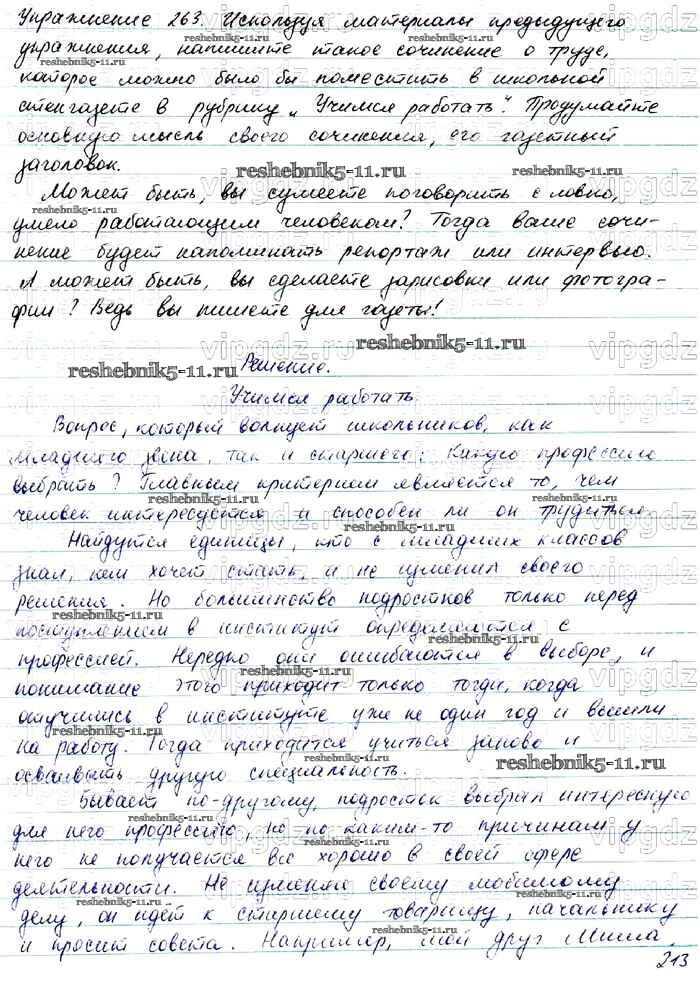 Упражнение 263. Используя материалы предыдущего
упражнения, напишите такое сочинение о труде,
которое можно было бы поместить в школьной
стенгазете в рубрику „Учимся работать". Продумайте
основную мысль своего сочинения, его газетный
заголовок.
Может быть, вы сумеете поговорить с ловко,
умело работающим человеком? Тогда ваше сочи-
нение будет напоминать репортаж или интервью.
А может быть, вы сделаете зарисовки или фотогра-
фии? Ведь вы пишете для газеты!
Решение.
Учимся работать.
Вопрос, который волнует школьников, как
младшего звена, так и старшего: Какую профессию
выбрать? Главным критерием является то, чем
человек интересуется и способен ли он трудиться.
Найдутся единицы, кто с младших классов
знал, кем хочет стать, и не изменил своего
решения. Но большинство подростков только перед
поступлением в институт определяются с
профессией. Нередко они ошибаются в выборе, и
понимание этого приходит только тогда, когда
отучились в институте уже не один год и вышли
на работу. Тогда приходится учиться заново и
осваивать другую специальность.
Бывает по-другому, подросток выбрал интересную
для него профессию, но по каким-то причинам у
него не получается все хорошо в своей сфере
деятельности. Не изменяя своему любимому
делу, он идет к старшему товарищу, начальнику
и просит совета. Например, мой друг Миша
213